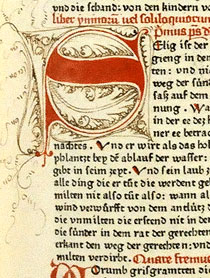 vnd die schand: von den kindern v
liber ymnorū vel soliloquiorum
Pmus ps d
Elig ist der
gieng in dem
ten: vnd ni
weg der sünd
saß auf dem
nung. Wañ
in der ee dez h
ner ee betrac
nachtes. Vnd er wirt als das hol
pflantzt bey dē ablauf der wasser:
gibt in seim zeyt. Vnd sein laub
alle ding die er tůt die werdent ge
milten nit also nit also: wann al
wind verwürfft von dem antlütz d
die vnmilten die ersteend nit in de
die sünder in dem rat der gerechten
erkant den weg der gerechten: vnd
milten verdirbt. Quare fremu
Worumb grisgramten di